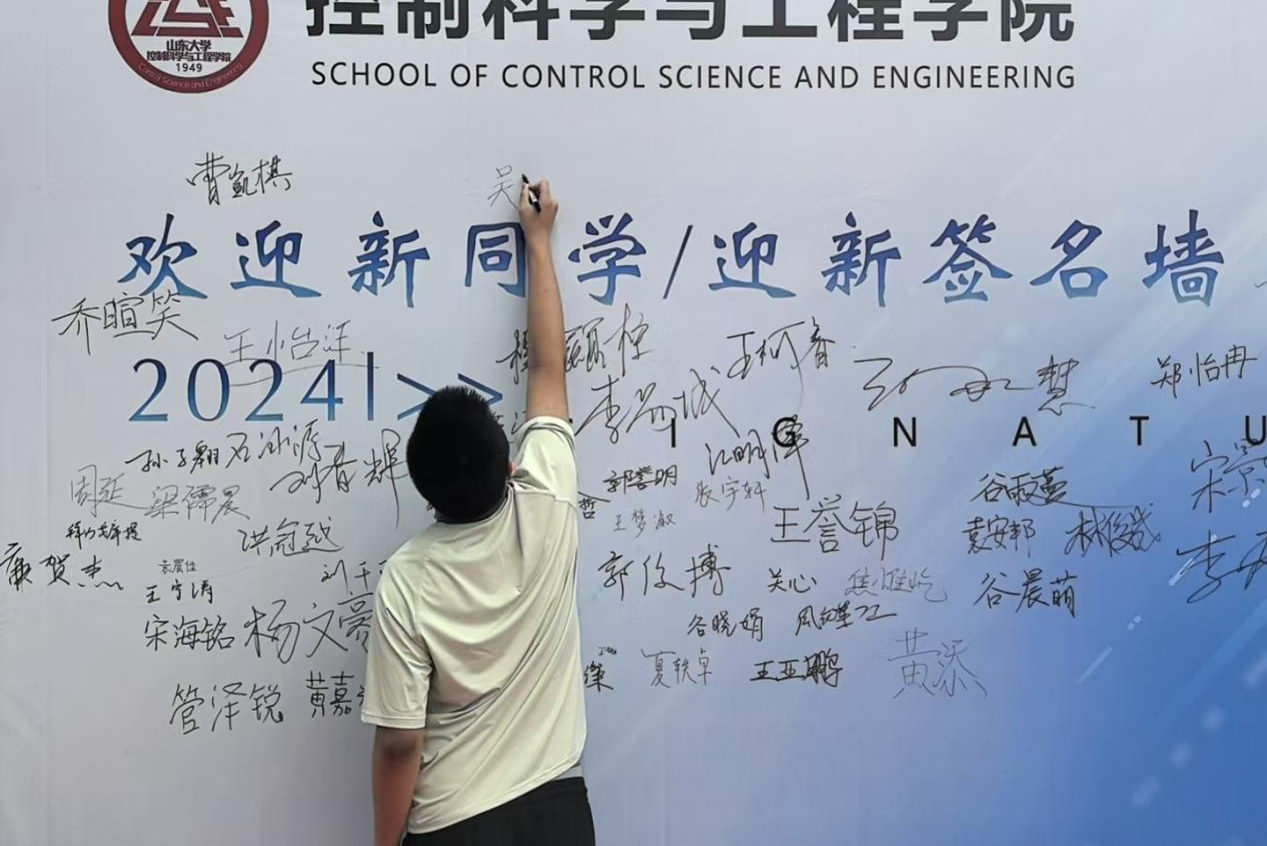 控制科学与工程学院
山东大学
控制科学与工程学院
1949
Control Science and Engineering
SCHOOL OF CONTROL SCIENCE AND ENGINEERING
曹凯棋
吴
欢迎新同学/迎新签名墙
乔暄笑
王怡洋
王柯睿
郑怡冉
2024|>>
李昱城
I G N A T U
孙子翱
刘春辉
江明泽
周延
梁儒晨
郭誉明
张宇轩
谷雨萱
哲
王梦淑
王誉锦
袁安邦
林俊成
洪冠越
贺杰
袁震佳
王守涛
刘千
郭俊博
关心
谷晨萌
宋海铭
杨文豪
谷晓娟
夏轶卓
王亚鹏
黄添
管泽锐
黄嘉